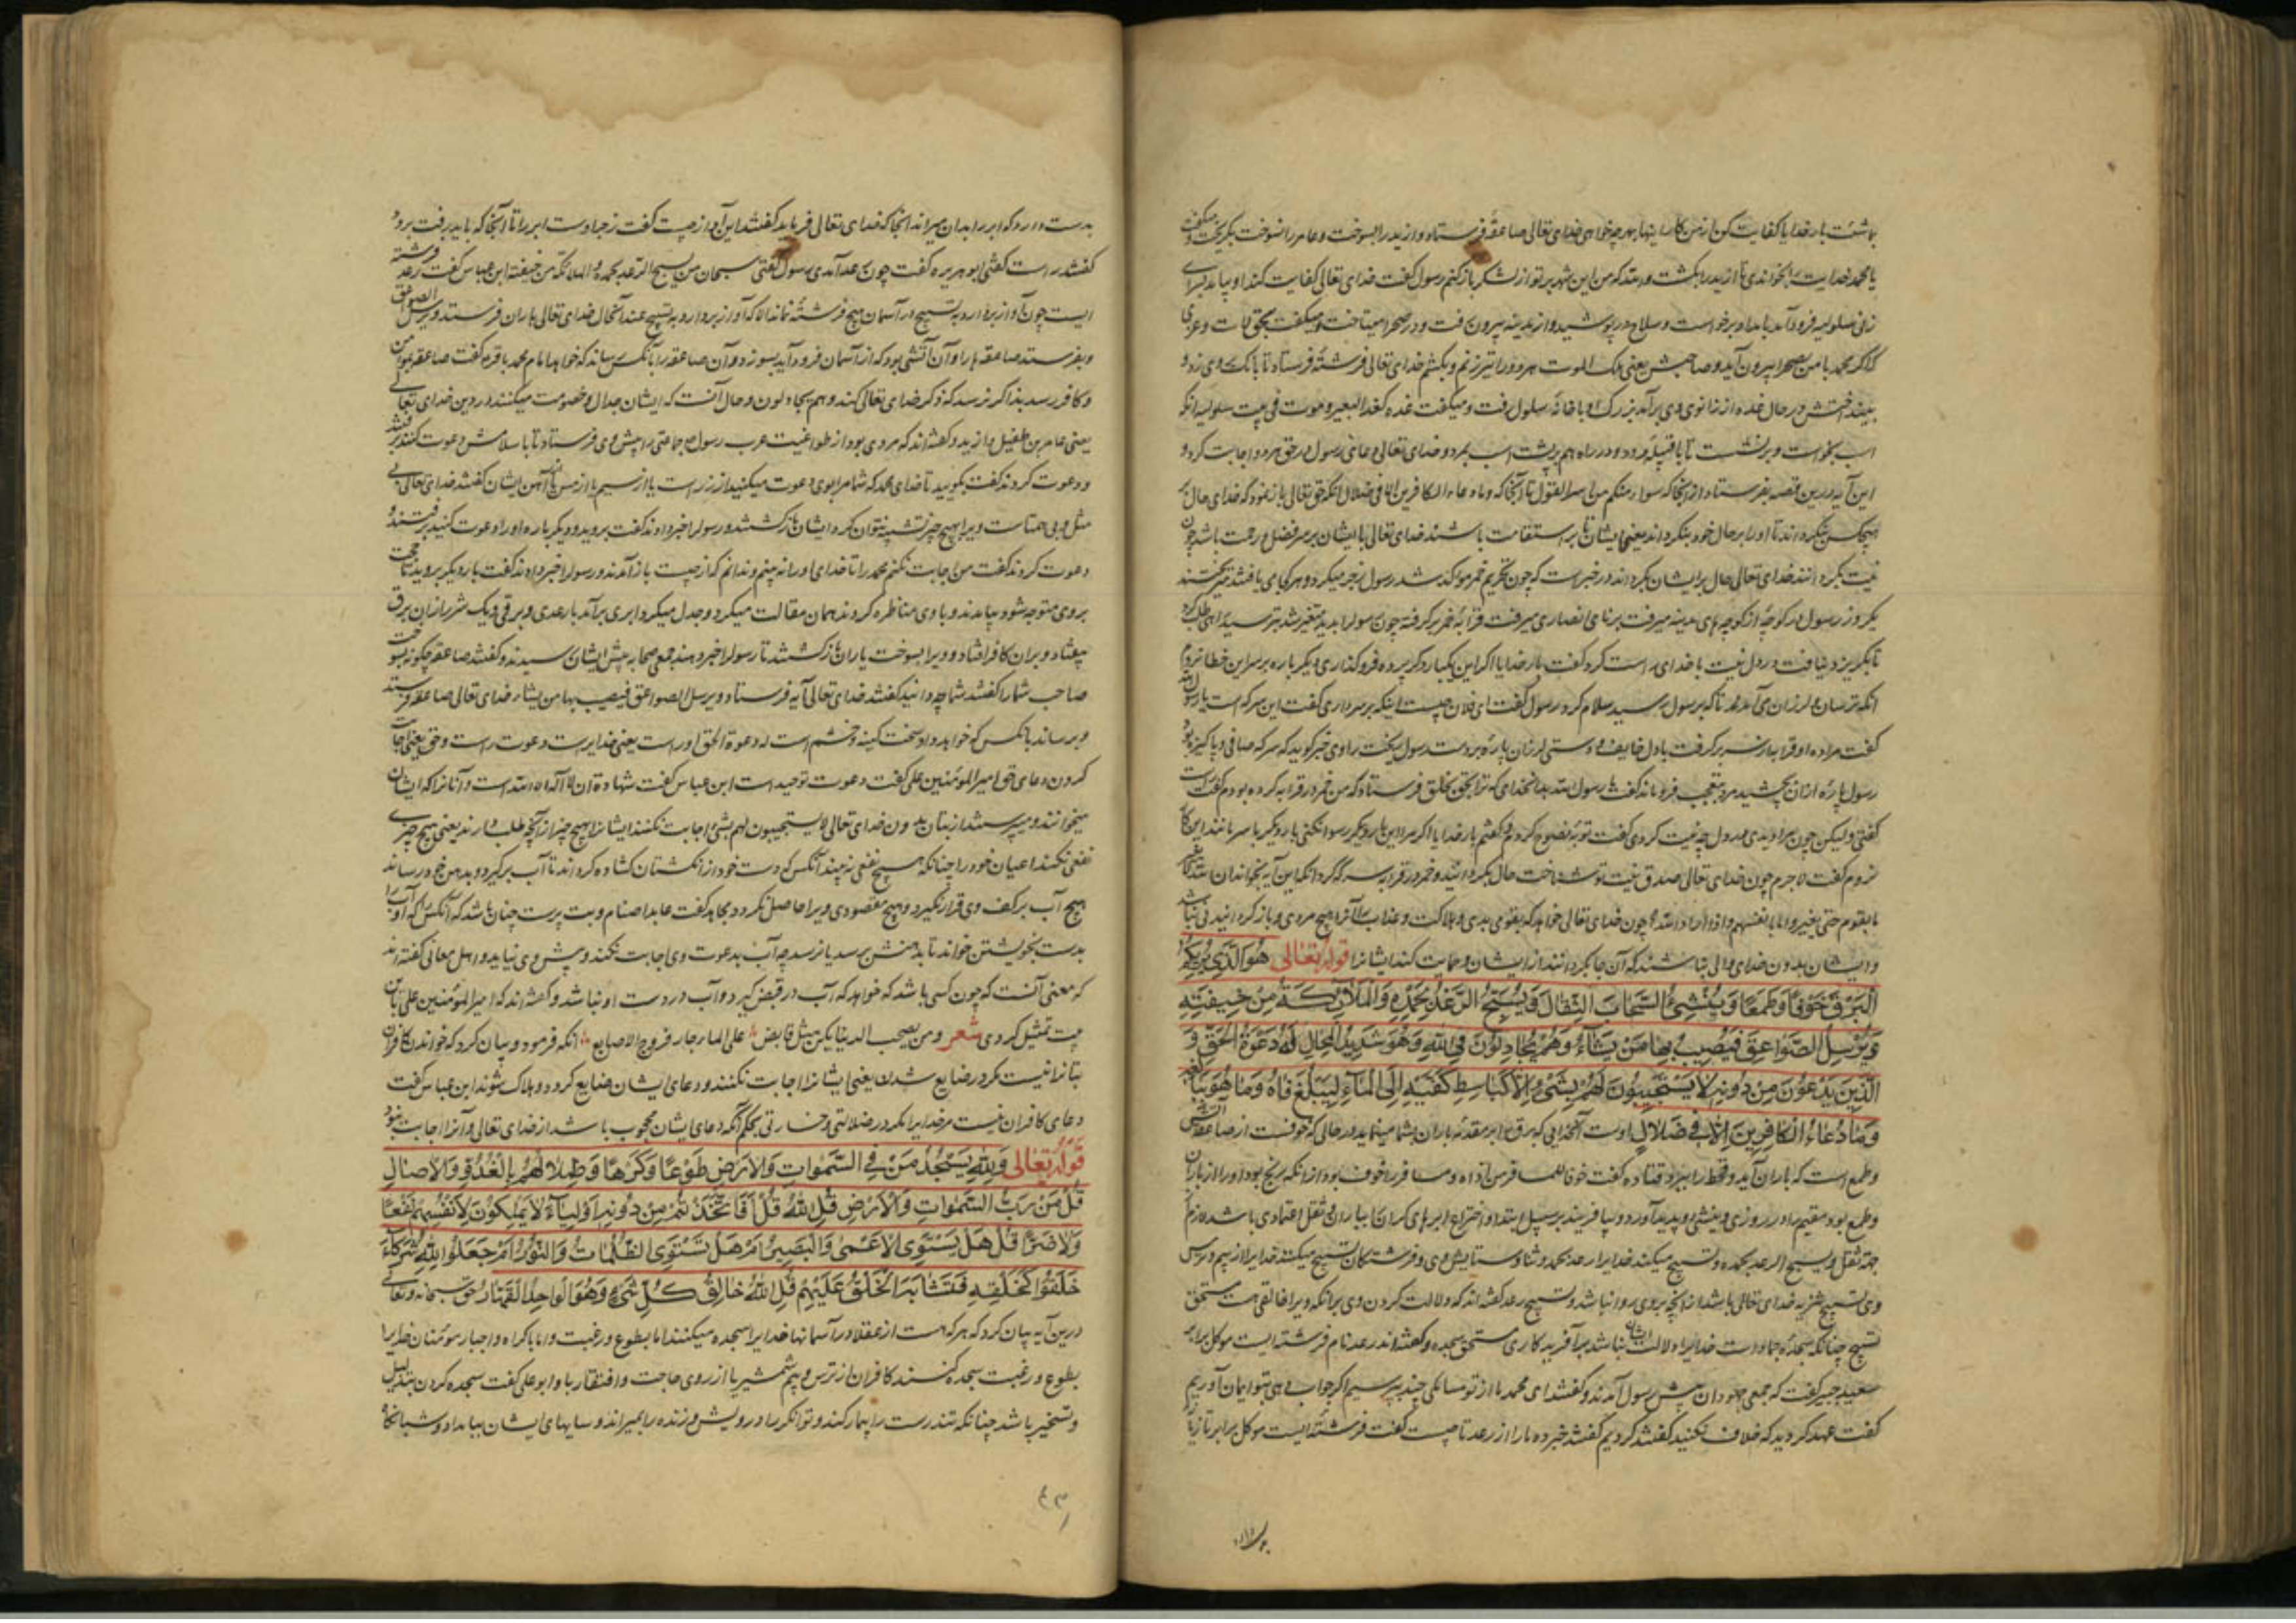 بماشئت بار خدایا کفایت کن از من کار اینها بهرچه خواهی خدای تعالی صاعقه فرستاد و ازید را بسوخت و عامر را نسوخت بگریخت و میگفت
یا محمد خدایت را بخواندی تا ازید را بکشت والله که من این شهر بر تو از لشکر باز کنم رسول گفت خدای تعالی کفایت کند او بیامد بسرای
زنی سلولیه فرود آمد بامداد برخواست و سلاح در پوشید و از مدینه بیرون رفت و در صحرا میتاخت و میگفت بحق لات و عزی
که اگر محمد با من بصحرا بیرون آید و صاحبش یعنی ملک الموت هر دو را بتیر زنم و بکشم خدای تعالی فرشته فرستاد تا بانگ بروی زد و
بیفند اختش در حال غده از زانوی وی برآمد بزرگ او با خانه سلول رفت و میگفت غده کغدة البعیر و موت فی بیت سلولیه آنگه
اسب بخواست و برنشست تا با قبیله رود و در راه هم بر پشت اسب بمرد و خدای تعالی دعای رسول در حق هر دو اجابت کرد و
این آیه درین قصه بفرستاد از آنجا که سواء منکم من اسر القول تا آنجا که وما دعاء الکافرین الا فی ضلال آنگه حق تعالی باز نمود که خدای حال
هیچکس بنگرداند تا او را بر حال خود بنگرداند یعنی ایشان تا بر استقامت باشند خدای تعالی با ایشان بر سر فضل و رحمت باشد چون
نیت بگردانند خدای تعالی حال بر ایشان بگرداند در خبر است که چون تحریم خمر مؤکد شد رسول زجر میکرد و هر کجا می یافتند میریختند
یکروز رسول در کوچه از کوچه های مدینه میرفت برنای انصاری میرفت قرابه خمر بر گرفته چون رسول را بدید متغیر شد بترسید راهی طلب کرد
تا بگریزد نیافت در دل نیت با خدای راست کرد گفت بار خدایا اگر این یکبار دگر پرده فرو گذاری دیگر باره بر سر این خطا نروم
آنگه ترسان و لرزان می آمد تا که بر رسول رسید سلام کرد رسول گفت ای فلان چیست اینکه بر سر داری گفت این سرکه است یا رسول الله
گفت مرا ده او قرابه از سر برگرفت بادل خایف و دستی لرزان پاره بر دست رسول ریخت راوی خبر گوید که سرکه صافی و پاکیزه بود
رسول پاره از آن بچشید مرد بتعجب فرو ماند گفت یا رسول الله بدانخدای که ترا بحق بخلق فرستاد که من خمر در قرابه کرده بودم گفت راست
گفتی ولیکن چون مرا دیدی در دل چه نیت کردی گفت توبه نصوح کردم و گفتم بار خدایا اگر مرا این بار دیگر رسوا نکنی بار دیگر با سر مانند این کار
نروم گفت لاجرم چون خدای تعالی صدق نیت تو شناخت حال بگردانید و خمر در قرابه سرکه گردانید این آیه بخواند ان الله لا یغیر
ما بقوم حتی یغیروا ما بانفسهم و اذا اراد الله چون خدای تعالی خواهد که بقومی بدی و هلاکت و عذاب آنرا هیچ مردی و باز گردانیدنی نباشد
و ایشان بدون خدای والی نباشند که آن جا بگردانند از ایشان و حمایت کند ایشانرا قوله تعالی هُوَ الَّذِی یُرِیکُمُ
الْبَرْقَ خَوْفًا وَطَمَعًا وَیُنْشِئُ السَّحَابَ الثِّقَالَ وَیُسَبِّحُ الرَّعْدُ بِحَمْدِهِ وَالْمَلَائِکَةُ مِنْ خِیفَتِهِ
وَیُرْسِلُ الصَّوَاعِقَ فَیُصِیبُ بِهَا مَنْ یَشَاءُ وَهُمْ یُجَادِلُونَ فِی اللَّهِ وَهُوَ شَدِیدُ الْمِحَالِ لَهُ دَعْوَةُ الْحَقِّ وَ
الَّذِینَ یَدْعُونَ مِنْ دُونِهِ لَا یَسْتَجِیبُونَ لَهُمْ بِشَیْءٍ إِلَّا کَبَاسِطِ کَفَّیْهِ إِلَی الْمَاءِ لِیَبْلُغَ فَاهُ وَمَا هُوَ بِبَالِغِهِ
وَمَا دُعَاءُ الْکَافِرِینَ إِلَّا فِی ضَلَالٍ اوست آنخدایی که برق ابر مقدمه باران بشما مینماید در حالی که خوفست از صاعقه آتش
و طمع است که باران آید و قحط را ببرد قتاده گفت خوفا للمسافر من اذاه و مسافر را خوف بود از آنکه برنج بود او را از باران
و طمع بود مقیم را در روزی و ینشئ و پدید آورد و بیافریند بر سبیل ابتدا و اختراع ابرهای گران بباران و ثقل اعتمادی باشد لازم
جهة ثقل و یسبح الرعد بحمده و تسبیح میکند خدایرا رعد بحمد و ثنا و ستایش وی و فرشتگان تسبیح میکنند خدایرا از بیم و ترس
وی تسبیح تنزیه خدای تعالی باشد از آنچه بروی روا نباشد و تسبیح رعد گفته اند که دلالت کردن وی بر آنکه ویرا خالقی هست مستحق
تسبیح چنانکه سجده جمادات خدایرا دلالت ایشان باشد بر آفریدگاری مستحق سجده و گفته اند رعد نام فرشته ایست موکل بر ابر
سعید جبیر گفت که جمعی جهودان پیش رسول آمدند و گفتند ای محمد ما از تو مسائلی چند بپرسیم اگر جواب دهی بتو ایمان آوریم
گفت عهد کردید که خلاف نکنید گفتند کردیم گفتند خبر ده ما را از رعد تا چیست گفت فرشته ایست موکل بر ابر تازیانه
بدست دارد که ابر را بدان میراند آنجا که خدای تعالی فرماید گفتند این آواز چیست گفت زجر اوست ابر را تا آنجا که باید رفت برود
گفتند راست گفتی ابو هریره گفت چون رعد آمدی رسول گفتی سبحان من یسبح الرعد بحمده و الملائکة من خیفته ابن عباس گفت رعد فرشته
ایست چون آواز بردارد به تسبیح در آسمان هیچ فرشته نماند الا که آواز بردارد به تسبیح عند آنحال خدای تعالی باران فرستد و یرسل الصواعق
و بفرستد صاعقه ها را و آن آتشی بود که از آسمان فرود آید بسوزد و آن صاعقه را بآنکس رساند که خواهد امام محمد باقر گفت صاعقه بمؤمن
و کافر رسد بذاکر نرسد که ذکر خدای تعالی کند و هم یجادلون و حال آنست که ایشان جدال و خصومت میکنند در دین خدای تعالی
یعنی عامر بن طفیل و ازید و گفته اند که مردی بود از طواغیت عرب رسول جماعتی را پیش وی فرستاد تا با سلامش دعوت کنند برفتند
و دعوت کردند گفت بگویید تا خدای محمد که شما مرا بوی دعوت میکنید از زر است یا از سیم یا از مس یا از آهن ایشان گفتند خدای تعالی بی
مثل و بی همتاست ویرا بهیچ چیز تشبیه نتوان کرد ایشان باز گشتند و رسول را خبر دادند گفت بروید و دیگر باره او را دعوت کنید برفتند و
دعوت کردند گفت من اجابت نکنم محمد را تا خدای او را نه بینم و ندانم که از چیست باز آمدند و رسول را خبر دادند گفت بار دیگر بروید تا حجت
بروی متوجه شود بیامدند و با وی مناظره کردند همان مقالت میکرد و جدل میکرد ابری بر آمد با رعدی و برقی و یک شرر از آن برق
بیفتاد و بر آن کافر افتاد و ویرا بسوخت یاران باز گشتند تا رسول را خبر دهند جمعی صحابه پیش ایشان رسیدند و گفتند صاعقه چگونه بسوخت
صاحب شما را گفتند شما چه دانید گفتند خدای تعالی آیه فرستاد و یرسل الصواعق فیصیب بها من یشاء خدای تعالی صاعقه فرستد
و برساند بآنکس که خواهد و او سخت کینه و خشم است له دعوة الحق او راست یعنی خدایراست دعوت راست و حق یعنی اجابت
کردن دعای حق امیر المؤمنین علی گفت دعوت توحید است ابن عباس گفت شهادة ان لا اله الا الله است و آنانرا که ایشان
میخوانند و میپرستند از بتان بدون خدای تعالی لا یستجیبون لهم بشئ اجابت نکنند ایشانرا بهیچ چیز از آنچه طلب دارند یعنی هیچ چیزی
نفعی نکنند داعیان خود را چنانکه هیچ نفعی نه بیند آنکس که دست خود از انگشتان گشاده گرداند تا آب برگیرد و بدهن خود رساند
هیچ آب بر کف وی قرار نگیرد و هیچ مقصودی ویرا حاصل نگردد مجاهد گفت عابد اصنام و بت پرست چنان باشد که آنکس که او آب را
بدست بخویشتن خواند تا بدهنش رسد یا نرسد چه آب بدعوت وی اجابت نکند و پیش وی نیاید و اهل معانی گفته اند
که معنی آنست که چون کسی باشد که خواهد که آب در قبض گیرد و آب در دست او نباشد و گفته اند که امیر المؤمنین علی باین
بیت تمثیل کردی شعر ومن یصحب الدنیا یکن مثل قابض علی الماء خانته فروج الاصابع آنکه فرمود و بیان کرد که خواندن کافران
بتانرا نیست مگر در ضایع شدن یعنی ایشانرا اجابت نکنند و دعای ایشان ضایع گردد و هلاک شوند ابن عباس گفت
دعای کافران نیست مر خدایرا مگر در ضلالتی و خسارتی بحکم آنکه دعای ایشان محجوب باشد از خدای تعالی و آنرا اجابت نبود
قوله تعالی وَلِلَّهِ یَسْجُدُ مَنْ فِی السَّمَوَاتِ وَالْأَرْضِ طَوْعًا وَکَرْهًا وَظِلَالُهُمْ بِالْغُدُوِّ وَالْآصَالِ
قُلْ مَنْ رَبُّ السَّمَوَاتِ وَالْأَرْضِ قُلِ اللَّهُ قُلْ أَفَاتَّخَذْتُمْ مِنْ دُونِهِ أَوْلِیَاءَ لَا یَمْلِکُونَ لِأَنْفُسِهِمْ نَفْعًا
وَلَا ضَرًّا قُلْ هَلْ یَسْتَوِی الْأَعْمَی وَالْبَصِیرُ أَمْ هَلْ تَسْتَوِی الظُّلُمَاتُ وَالنُّورُ أَمْ جَعَلُوا لِلَّهِ شُرَکَاءَ
خَلَقُوا کَخَلْقِهِ فَتَشَابَهَ الْخَلْقُ عَلَیْهِمْ قُلِ اللَّهُ خَالِقُ کُلِّ شَیْءٍ وَهُوَ الْوَاحِدُ الْقَهَّارُ حق سبحانه و تعالی
درین آیه بیان کرد که هر که هست از عقلا در آسمانها خدایرا سجده میکنند اما بطوع و رغبت و اما باکراه و اجبار مؤمنان خدایرا
بطوع و رغبت سجده کنند کافران از ترس و بیم شمشیر یا از روی حاجت و افتقار باو ابو علی گفت سجده کردن بتذلیل
و تسخیر باشد چنانکه تندرست را بیمار کند و توانگر را درویش و زنده را بمیراند و سایهای ایشان بامداد و شبانگاه